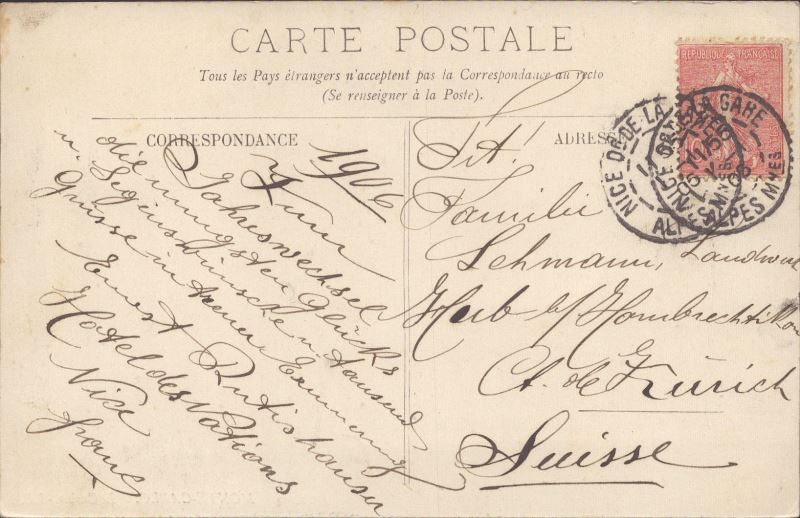 CARTE POSTALE
Tous les Pays étrangers n'acceptent pas la Correspondance au recto
(Se renseigner à la Poste).
CORRESPONDANCE
ADRESSE
REPUBLIQUE FRANÇAISE
NICE DE LA GARE
ALPES MMES
1906
Zum
Jahreswechsel
die innigsten Glücks
u. Segenswünsche u. tausend
Grüsse in treuer Erinnerung
Ernest Rutishauser
Hotel des Nations
Nice
France
Tit!
Familie
Lehmann, Landwirt
Hueb b/ Hombrechtikon
Ct. de Zürich
Suisse